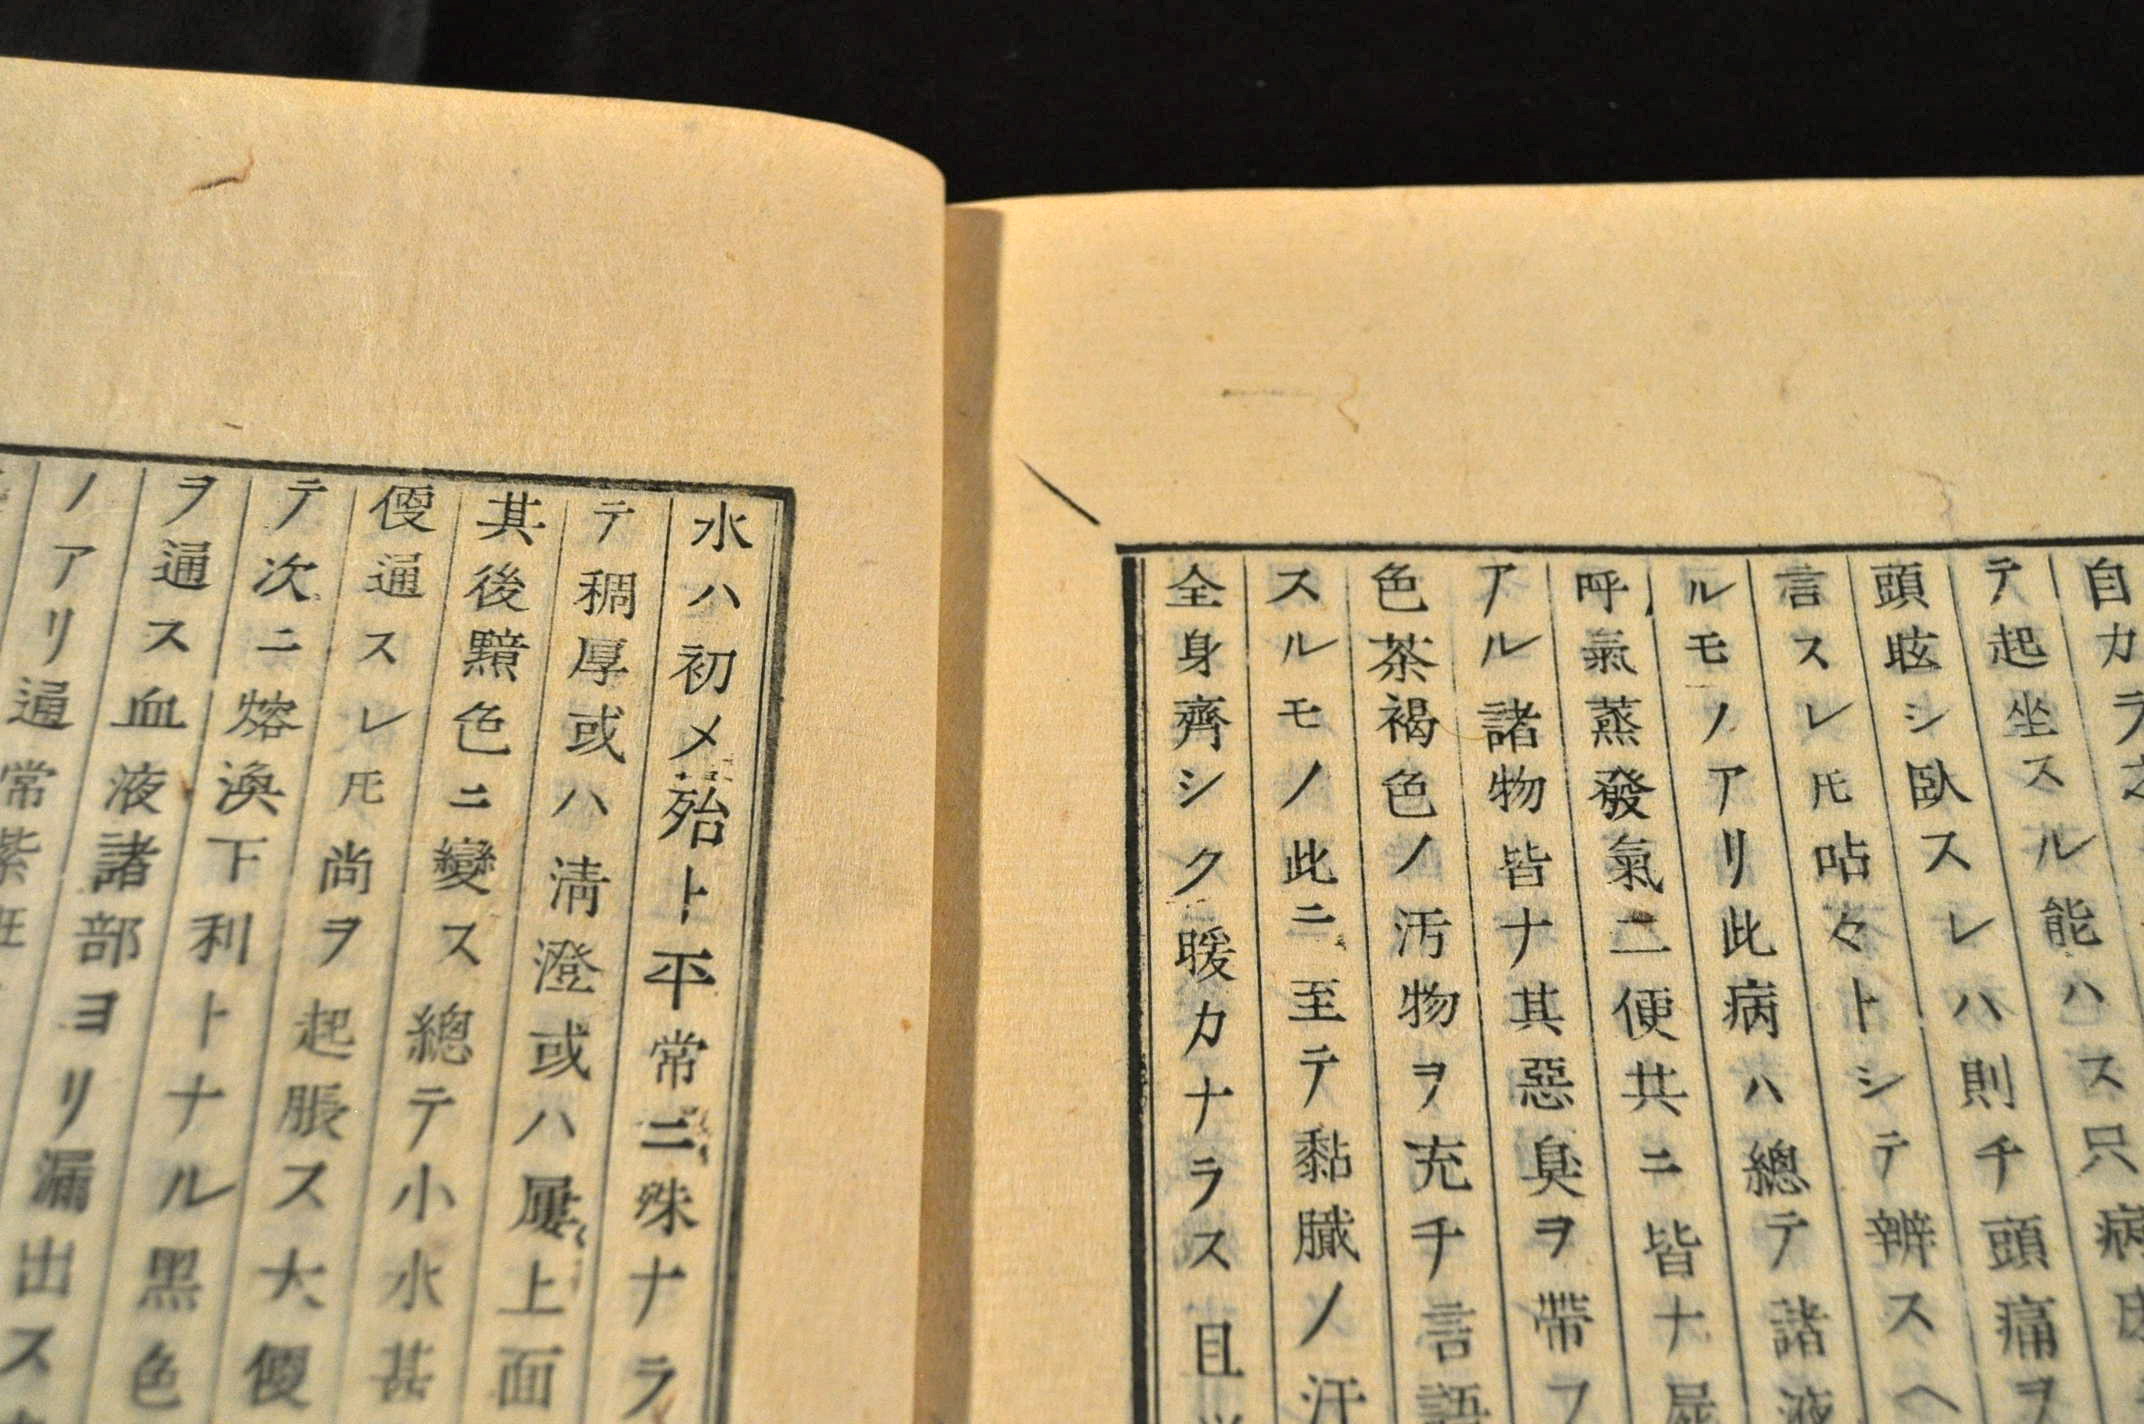 自カラ
テ起坐スル能ハス只病
頭眩シ臥スレハ則チ頭痛ヲ
言スレ𪜈呫々トシテ辨スヘ
ルモノアリ此病ハ總テ諸液
呼氣蒸發氣二便共ニ皆ナ屍
アル諸物皆ナ其惡臭ヲ帶フ
色茶褐色ノ汚物ヲ充チ言語
スルモノ此ニ至テ黏臓ノ汗
全身齊シク暖カナラス且
水ハ初メ殆ト平常ニ殊ナラ
テ稠厚或ハ淸澄或ハ屢上面
其後黯色ニ變ス總テ小水甚
便通スレ𪜈尚ヲ起脹ス大便
テ次ニ熔渙下利トナル黑色
ヲ通ス血液諸部ヨリ漏出ス
ノアリ通常紫斑